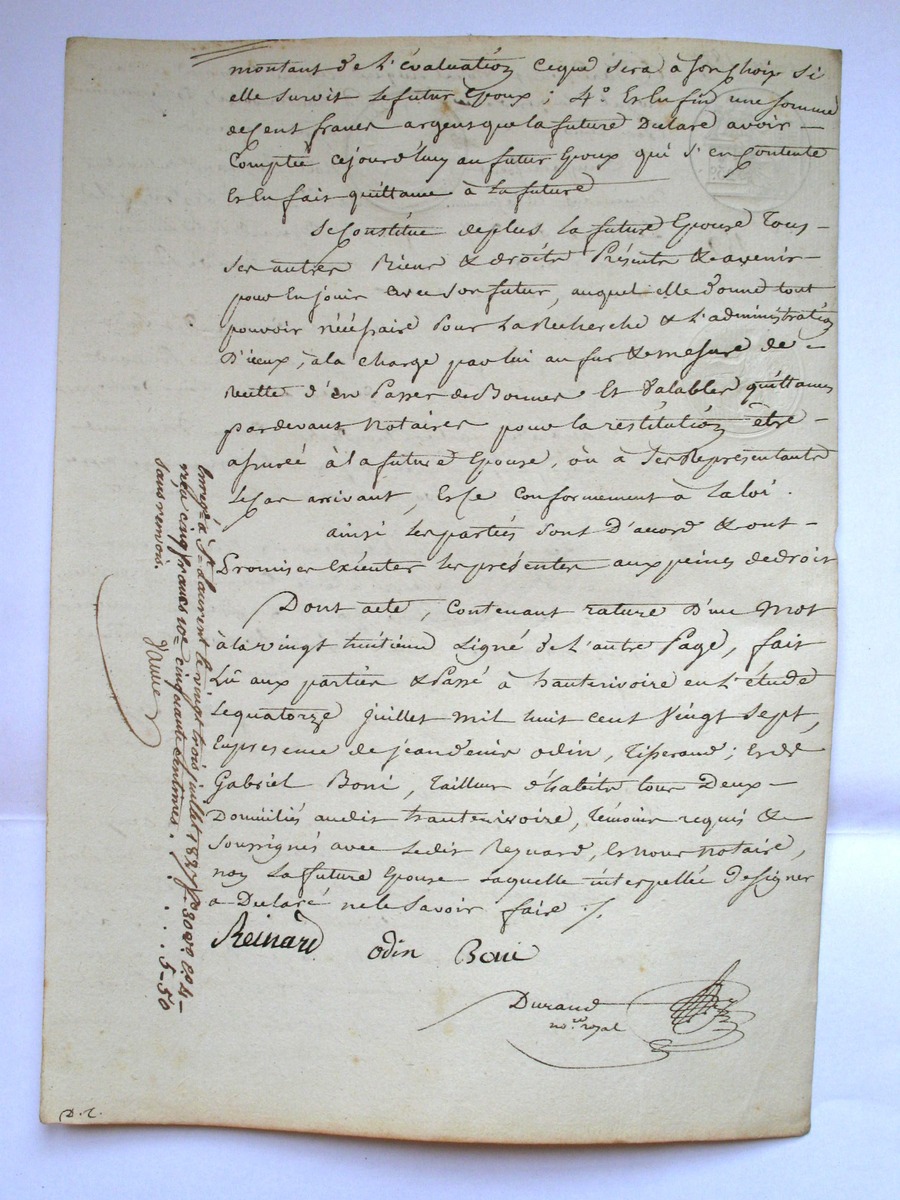 montant de l'évaluation, ce que sera à son choix si
elle survit le futur Epoux ; 4.° Et Enfin une somme
de Cent francs argent que la future Déclare avoir
Comptée cejourd'huy au futur Epoux qui s'en Contente
Et En fait quittance à la future
Se Constitue de plus la future Epouse Tous
Ses autres Biens & droits Présents & à venir
pour En jouir avec son futur, auquel elle donne tout
pouvoir nécéssaire Pour la Recherche & L'administration
D'iceux, à la charge par lui au fur & mesure de
Recette d'en Passer de Bonnes Et Valables quittances
pardevant Notaires pour la restitution être
assurée à la future Epouse, où à Ses Représentants
le Cas arrivant, Et Ce Conformement à la loi.
ainsi les parties sont D'acord & ont
Promis exécuter les présentes aux peines de droit
Dont acte, Contenant rature D'un Mot
à la vingt huitieme Ligne de L'autre Page, fait
Lu aux parties & Passé à hauterivoire en L'étude
Le quatorze juillet mil huit cent Vingt Sept,
En presence de jean denis odin, Tisserand ; Et de
Gabriel Boni, Tailleur d'habits tous Deux
Domiciliés audit hauterivoire, témoins requis &
Soussignés avec Ledit Reynard, Et nous Notaire,
non La future Epouse Laquelle interpellée de signer
a Déclaré ne le Savoir faire ./.
Reinard odin Boni
Durand
no.re royal
Enreg.é à S.t Laurent le vingt trois juillet 1827 f.° 30 v.° C. 4
reçu cinq francs 10.e cinquante centimes. 5-50
sans renvois.
D. C.